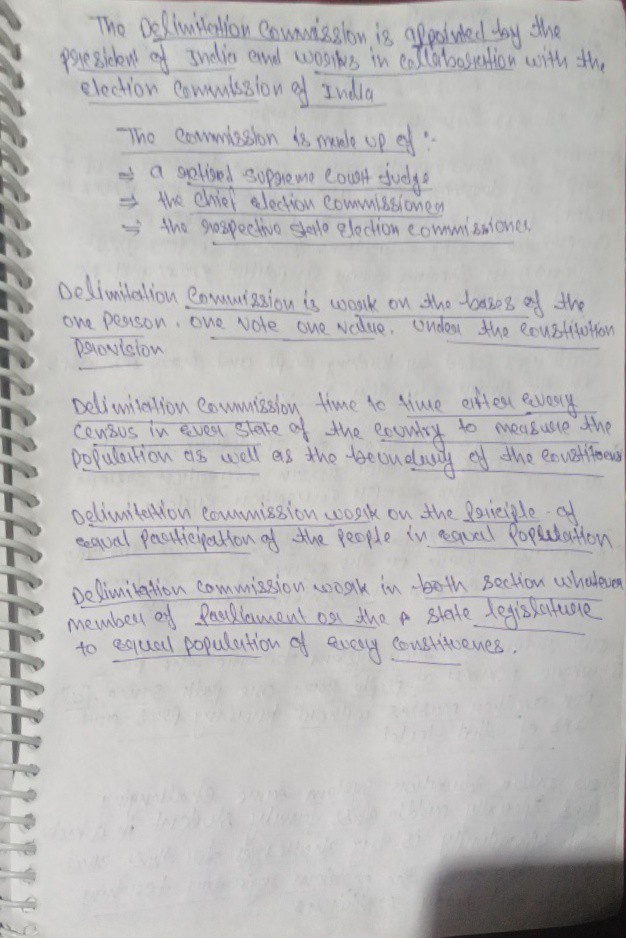 The Delimitation Commission is appointed by the
president of India and works in collaboration with the
election Commission of India
The Commission is made up of :-
⇒ a retired supreme court judge
⇒ the chief election commissioner
⇒ the respective state election commissioner
Delimitation Commission is work on the bases of the
one person, one vote one value, under the constitution
Provision
Delimitation Commission time to time after every
Census in ever state of the country to measure the
population as well as the boundary of the
Delimitation commission work on the Priciple - of
equal Participation of the people in equal Population
Delimitation commission work in both section whatever
member of Parliament or the state legislature
to equal population of every constituences.